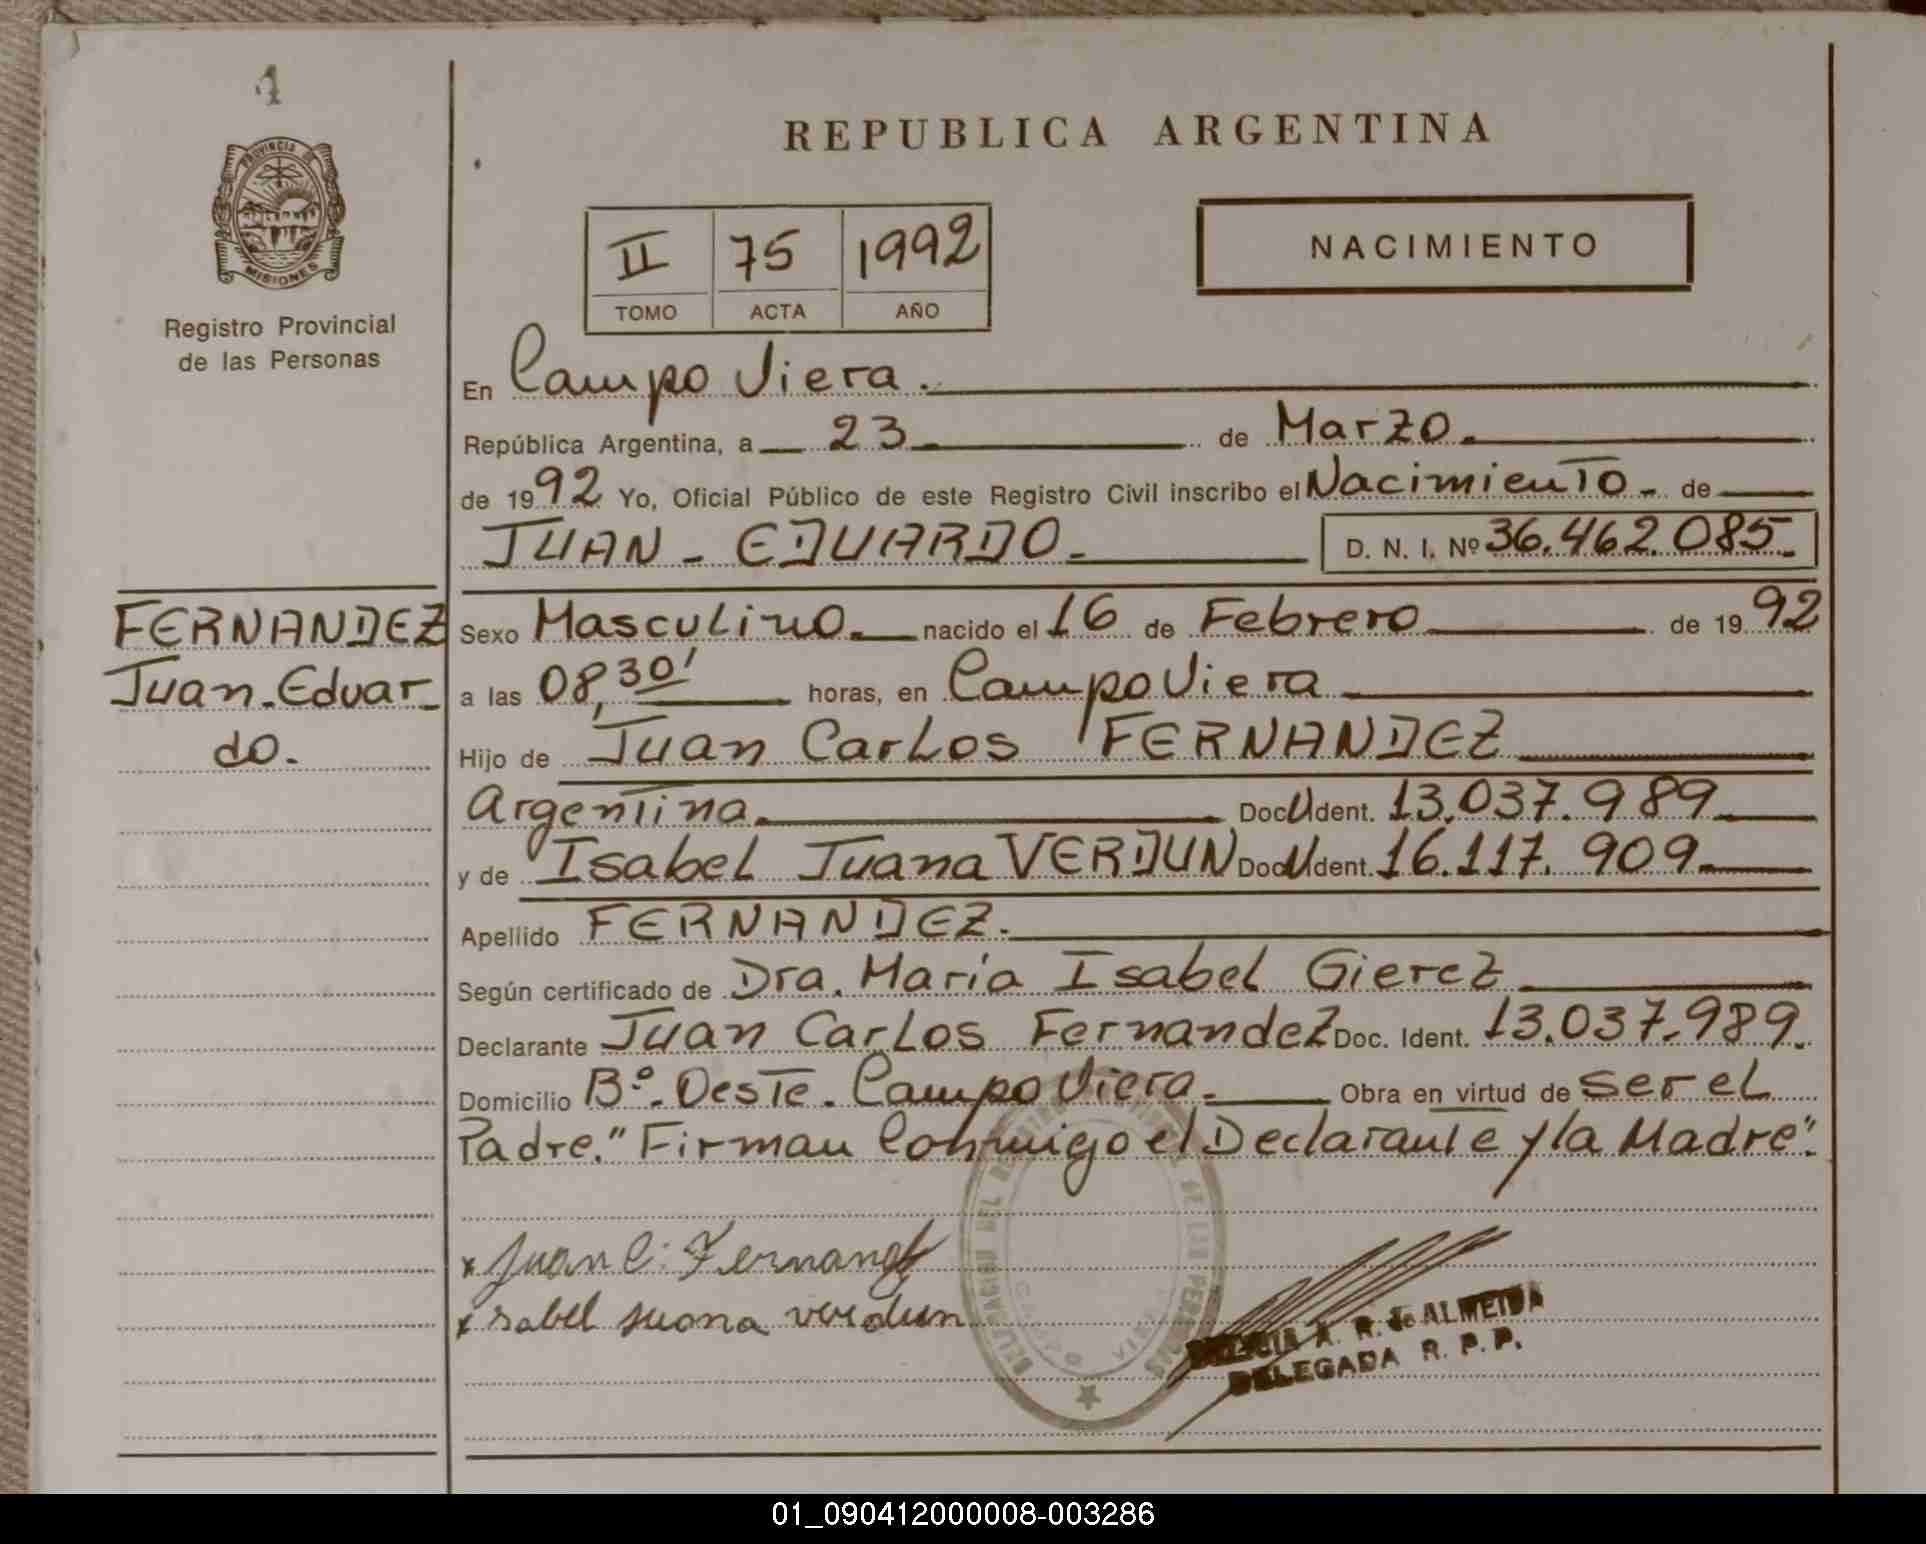 4
PROVINCIA DE
MISIONES
Registro Provincial
de las Personas
REPUBLICA ARGENTINA
II 75 1992
TOMO ACTA AÑO
NACIMIENTO
En Campo Viera.
República Argentina, a 23 de Marzo.
de 1992 Yo, Oficial Público de este Registro Civil inscribo el Nacimiento de
JUAN - EDUARDO. D. N. I. Nº 36.462.085.
FERNANDEZ
Juan-Eduar-
do.
Sexo Masculino. nacido el 16 de Febrero de 1992
a las 08,30' horas, en Campo Viera
Hijo de Juan Carlos FERNANDEZ
Argentina. Doc U Ident. 13.037.989
y de Isabel Juana VERDUN Doc U Ident. 16.117.909.
Apellido FERNANDEZ.
Según certificado de Dra. María Isabel Gierez
Declarante Juan Carlos Fernandez Doc. Ident. 13.037.989.
Domicilio Bº. Oeste. Campo Viera. Obra en virtud de ser el
Padre." Firman Conmigo el Declarante y la Madre".
x Juan C. Fernand
x sabel Juana verdun
CAMPO VIERA
A. R. de ALMEIDA
DELEGADA R. P. P.
01_090412000008-003286